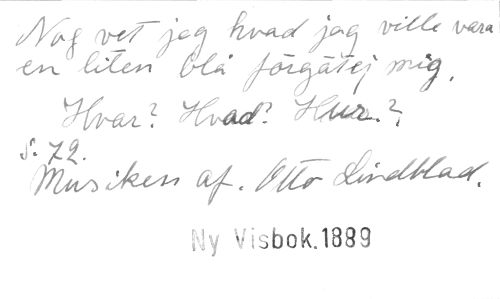 Nog vet jag hvad jag ville vara
en liten blå förgätej mig.
Hvar? Hvad? Hur.?
s. 72.
Musiken af. Otto Lindblad.
Ny Visbok.1889